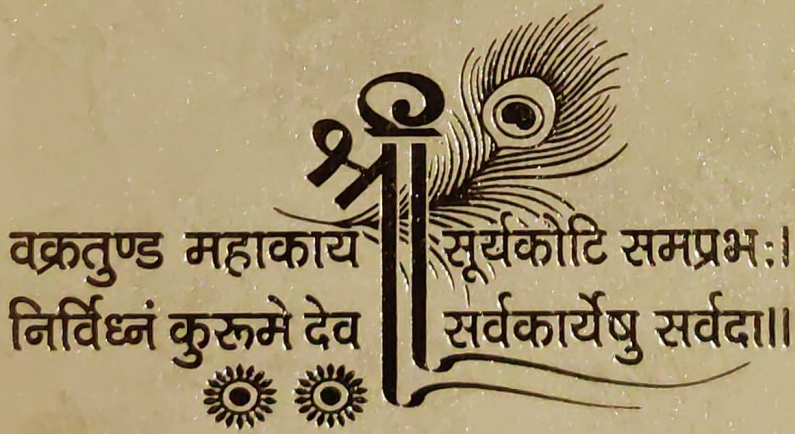 श्री
वक्रतुण्ड महाकाय सूर्यकोटि समप्रभ:।
निर्विध्नं कुरूमे देव सर्वकार्येषु सर्वदा॥